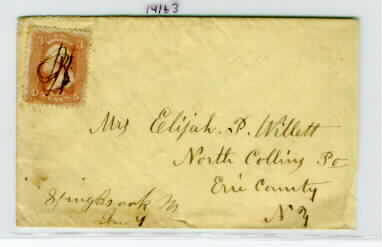 14163
Mrs Elijah. P. Willett
North Collins Po
Erie County
N Y
Springbrook